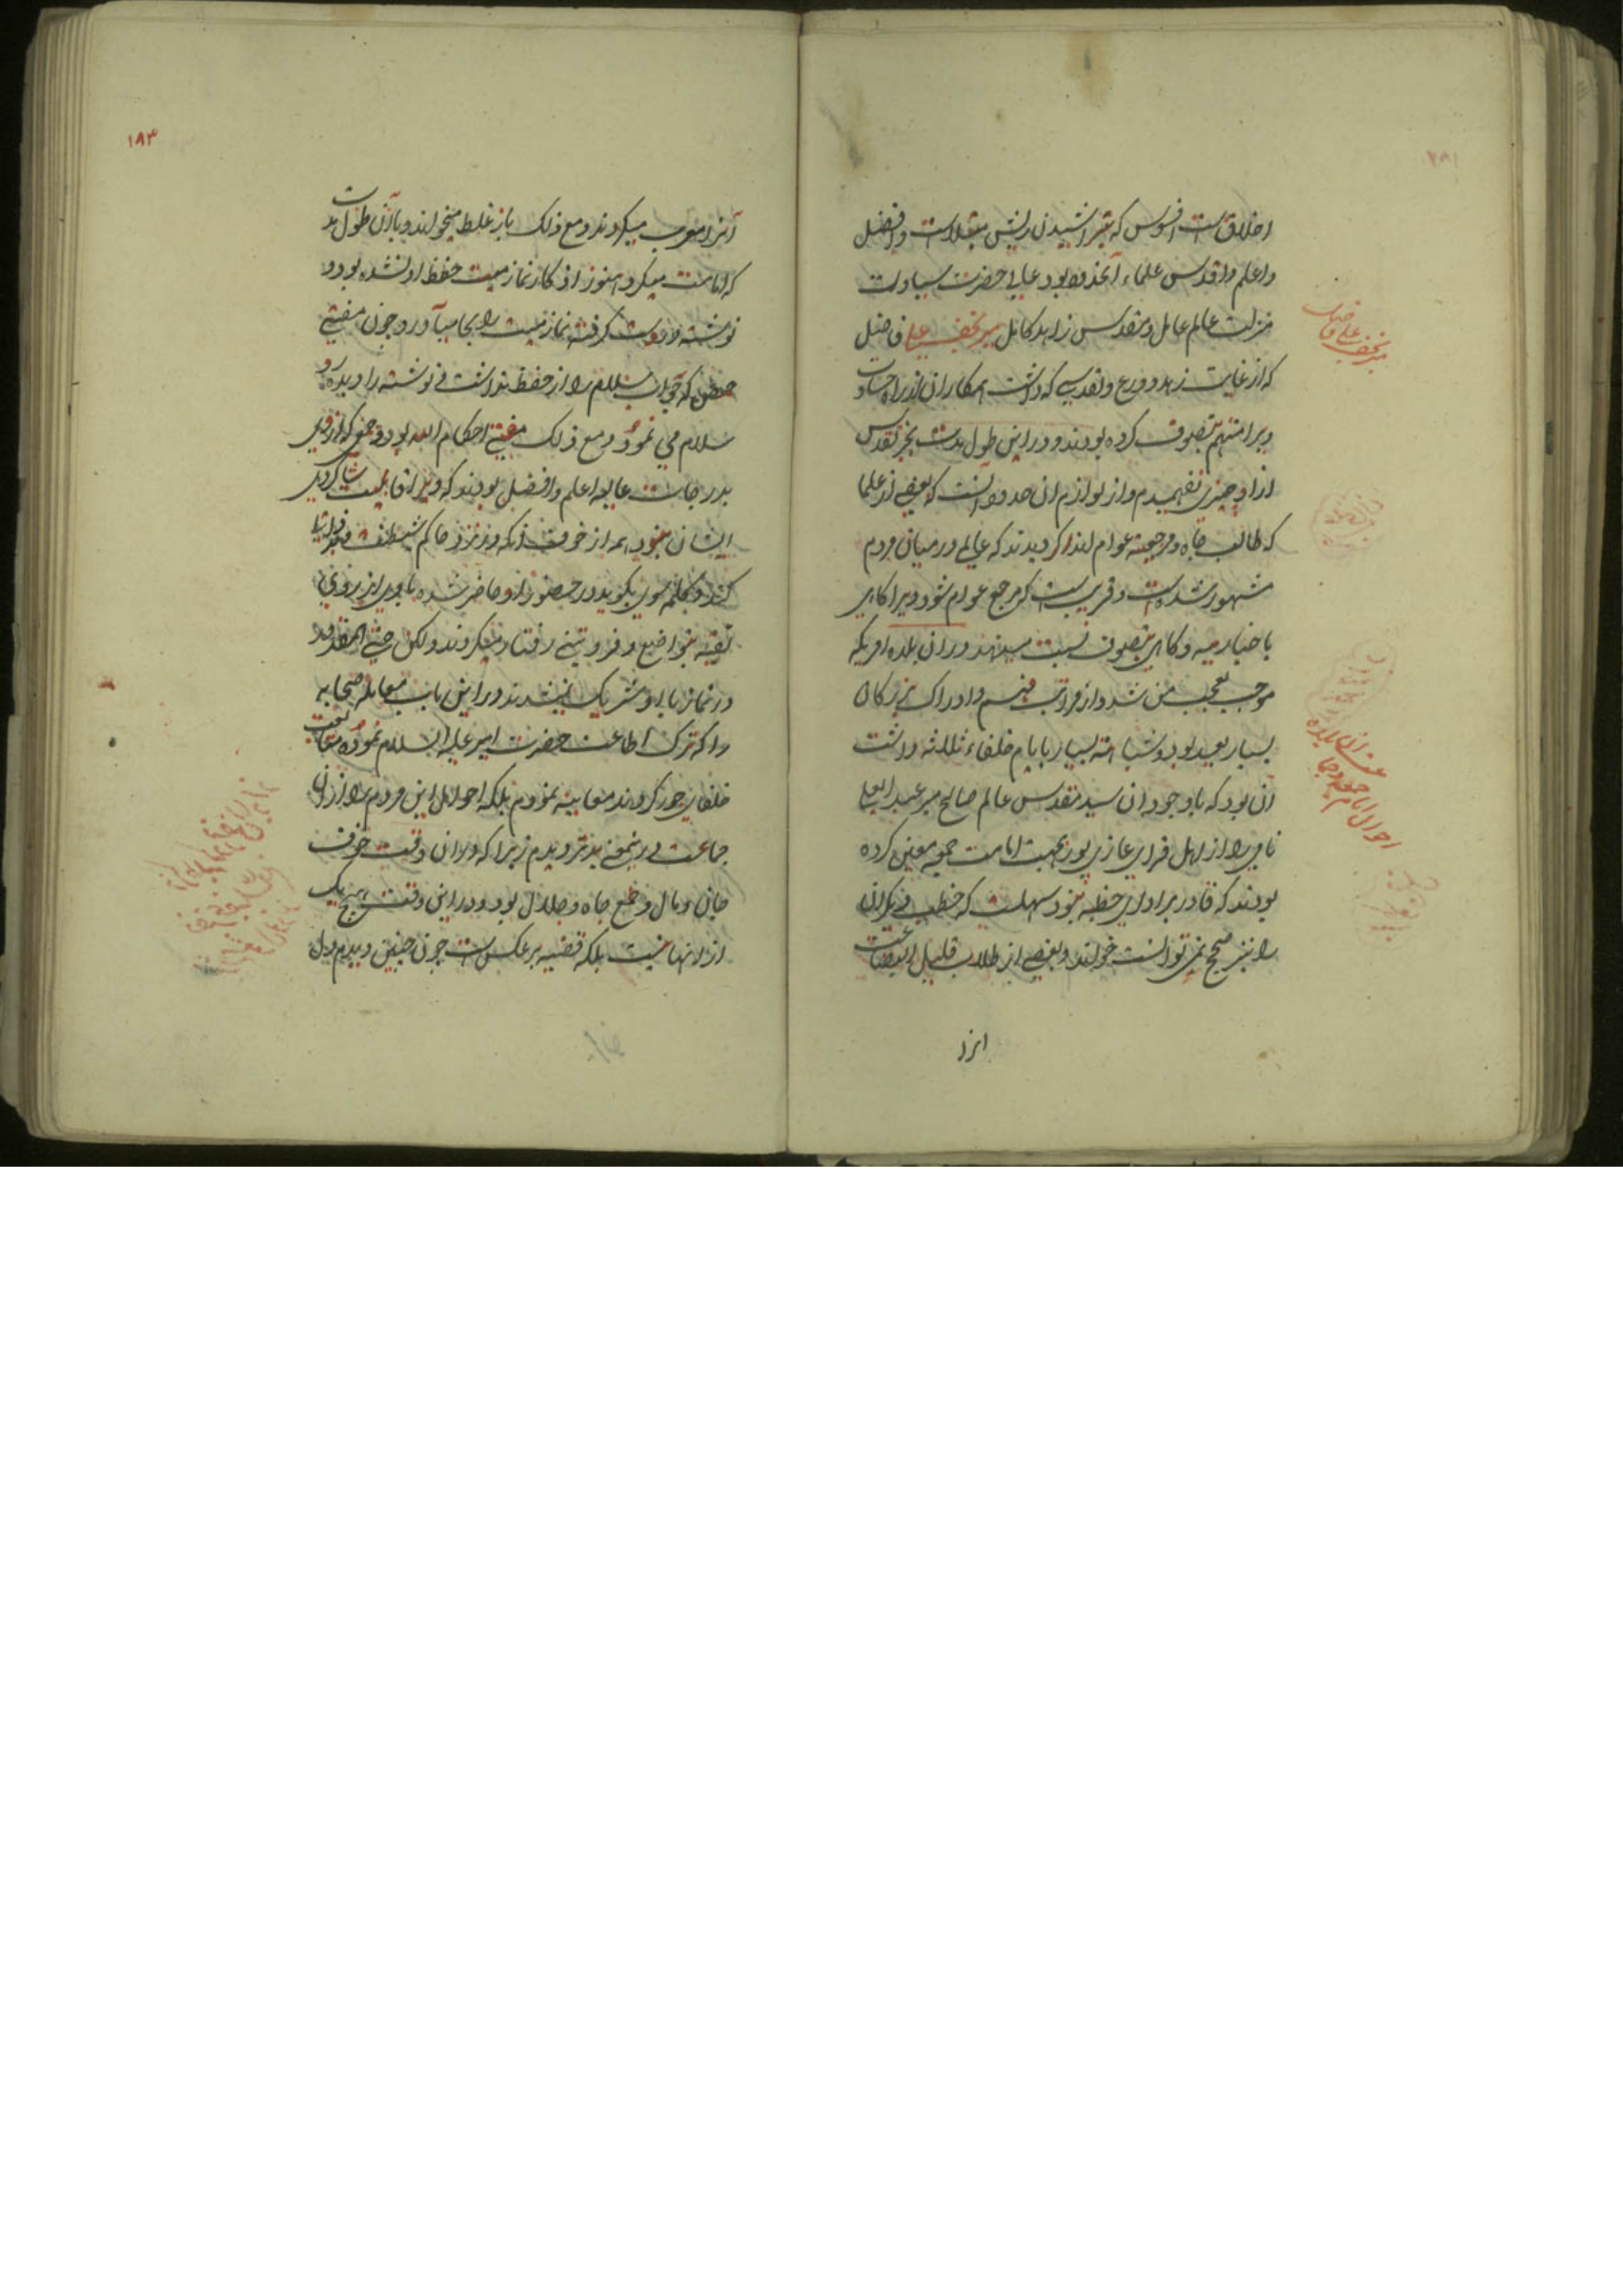 اخلاق است افسوس که بتراشیدن ریش مبتلاست و افضل
و اعلم و اقدس علماء آنحدود بود عالی حضرت سیادت
منزلت عالم عامل و مقدس زاهد کامل میر نجف علی فاضل
که از غایت زهد و ورع و تقدسی که داشت همکاران از راه حسادت
ویرا متهم بتصوف کرده بودند و در این طول مدت بجز تقدس
از او چیزی نفهمیدم و از لوازم ان حدود است که بعضی از علما
که طالب جاه و مرجعیته عوام اند اگر دیدند که عالمی در میان مردم
مشهور شده است و قریب است که مرجع عوام شود ویرا گاهی
باخباریه و گاهی بتصوف نسبت میدهند و در ان بلده امریکه
موجب تعجب من شد و از مراتب فهم و ادراک بزرگان
بسیار بعید بود و شباهته بسیار بایام خلفاء ثلثه داشت
آن بود که با وجود ان سید مقدس عالم صالح میر عبدالعلی
نامی را از اهل قرای غازی پور بجهت امامت جمعه معین کرده
بودند که قادر بر ادای خطبه نبود سهلست که خطب دیگران
را نیز صحیح نمی توانست خواند و بعضی از طلاب قلیل البضاعت
انرا
میر نجف علی فاضل
۱۸۳
آنرا معرب میکردند و مع ذلک باز غلط میخواند و با آن طول مدت
که امامت میکرد هنوز اذکار نماز میت حفظ او نشده بود و
نوشته در دست گرفته نماز میت را بجا میآورد و چون مفتی
که جواب سلام را از حفظ نداشت نوشته را دیده رد
سلام می نمود و مع ذلک مفتی احکام الله بود و جمعی که از وی
بدرجات عالیه اعلم و افضل بودند که ویرا قابلیت شاگردی
ایشان نبود همه از خوف آنکه در نزد حاکم شیطنت و
کند و کلمه سوئی بگوید در حضور او حاضر شده با وی از روی
تقیه بتواضع و فروتنی رفتار میکردند ولکن حتی المقدور
در نماز با او شریک نمیشدند در این باب معامله صحابه
را که ترک اطاعت حضرت امیر علیه السلام نموده متابعت
خلفای جور کردند معاینه نمودم بلکه احوال این مردم را از آن
جماعت در اینمعنی بدتر دیدم زیرا که در ان وقت خوف
جان و مال و طمع جاه و جلال بود و در این وقت هیچ یک
از انها نیست بلکه قضیه برعکس است چون چنین دیدم دل